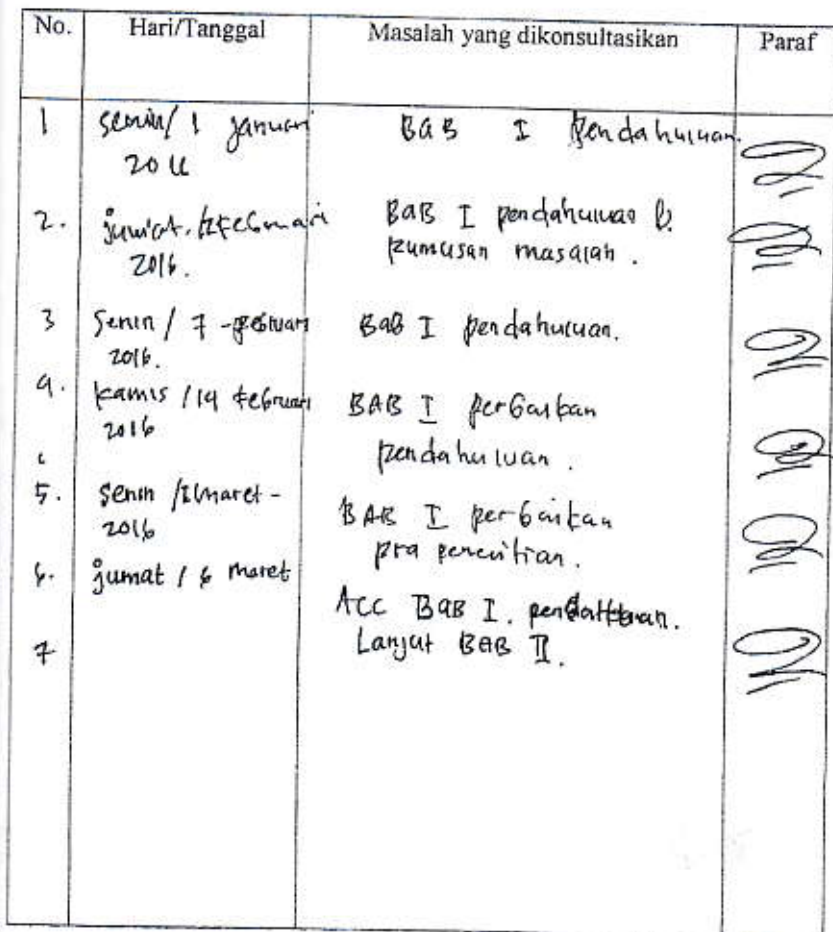 No. Hari/Tanggal Masalah yang dikonsultasikan Paraf
1 Senin/ 1 Januari BAB I Pendahuluan.
2016
2. Jum'at, Februari BAB I pendahuluan
2016. Rumusan masalah.
3 Senin / 7 - Februari BAB I pendahuluan.
2016.
4. Kamis / 14 Februari BAB I perbaikan
2016 pendahuluan.
5. Senin / maret - BAB I perbaikan
2016 pra penelitian.
6. Jumat / 6 Maret
ACC BAB I.
7 Lanjut BAB II.